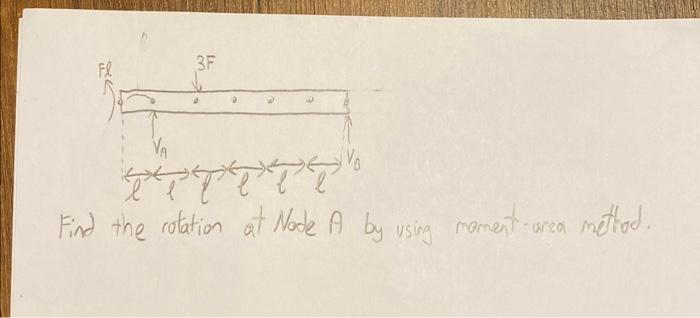 3F
Fl
VA
VB
l l l l l l
Find the rotation at Node A by using moment-area method.